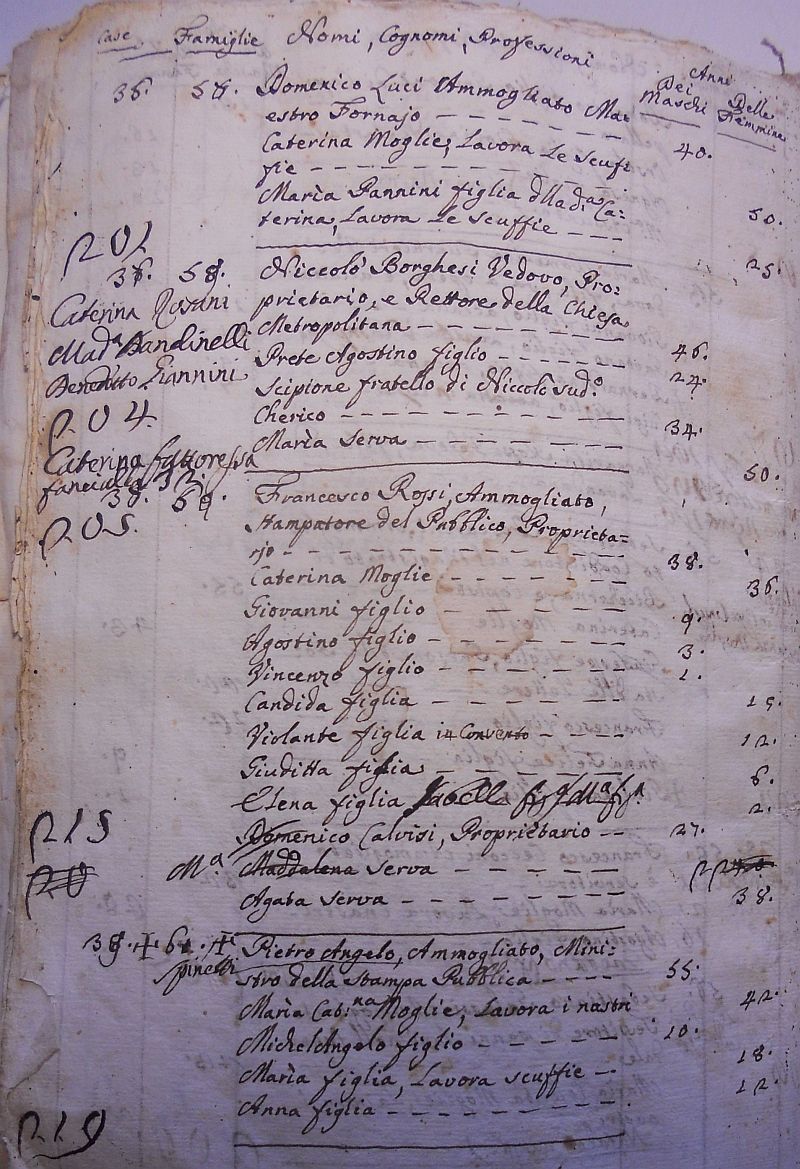 Case Famiglie Nomi, Cognomi, Professioni Anni
Dei Maschi Delle Femmine
36. 58. Domenico Luci Ammogliato Ma=
estro Fornajo — — — — — — 40.
Caterina Moglie, Lavora Le Scuf=
fie — — — — — — — — — — 50.
Marìa Pannini figlia dllad.a Ca=
terina, Lavora Le Scuffie — — — 25.
201
58. Niccolò Borghesi Vedovo, Pro=
Caterina
prietario, e Rettore della Chiesa
Metropolitana — — — — — — 46.
Mad.a Bandinelli
Prete Agostino figlio — — — — — 24.
Benedetto Giannini
Scipione fratello di Niccolò sud.o
204.
Cherico — — — — — — — — 34.
Marìa Serva — — — — — — — 50.
Caterina fattoressa
38. Francesco Rossi, Ammogliato,
205.
Stampatore del Pubblico, Proprieta=
rjo — — — — — — — — — — 38.
Caterina Moglie — — — — — — 36.
Giovanni figlio — — — — — — 9.
Agostino figlio — — — — — — 3.
Vincenzo figlio — — — — — — 1.
Candida figlia — — — — — — 15.
Violante figlia in Convento — — — 12.
Giuditta figlia — — — — — — 6.
Elena figlia 2.
215
Domenico Calvisi, Proprietario — — 27.
M.a Maddalena Serva — — — — — —
Agata Serva — — — — — — — 38.
Pietro Angelo, Ammogliato, Mini=
spinelli
stro della Stampa Pubblica — — — 55.
Marìa Cat:na Moglie, Lavora i nastri 42.
MichelAngelo figlio — — — — — 10.
Marìa figlia, Lavora scuffie — — 18.
Anna figlia — — — — — — — 12.
219